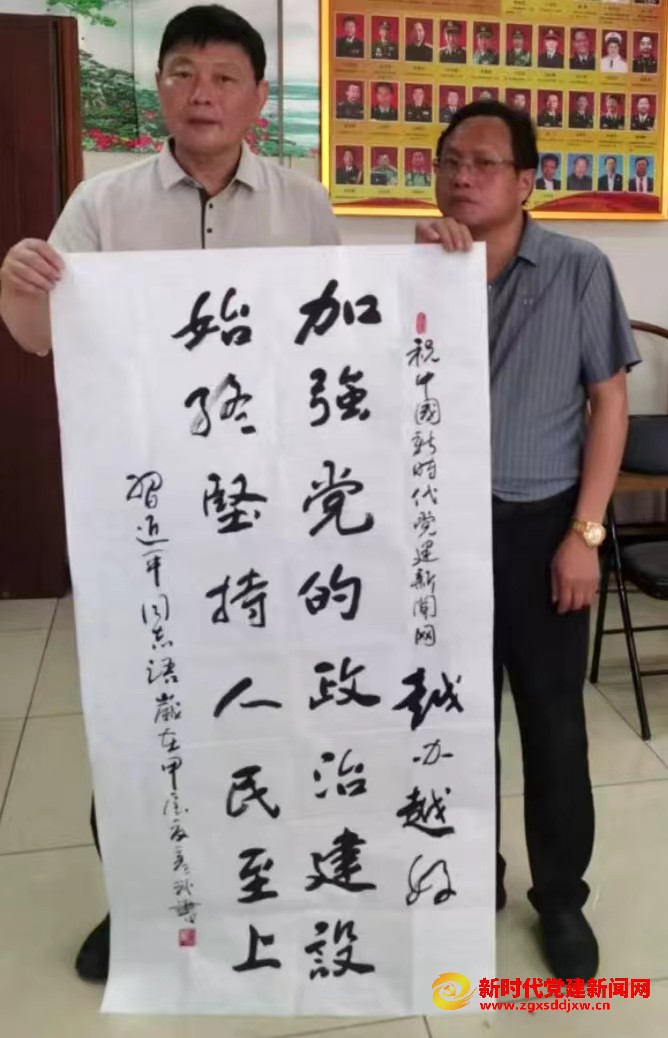 祝中國新時代党建新聞网
越办越好
加強党的政治建設
始終堅持人民至上
習近平同志語歲在甲辰夏
新时代党建新闻网
www.zgxsddjxw.cn